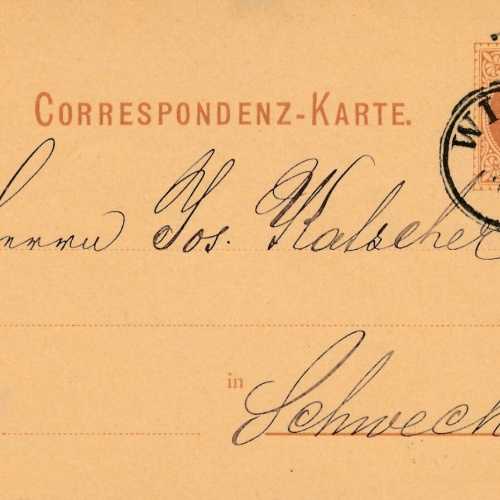 CORRESPONDENZ-KARTE.
WI
Herrn Jos. Katscher
in Schwech